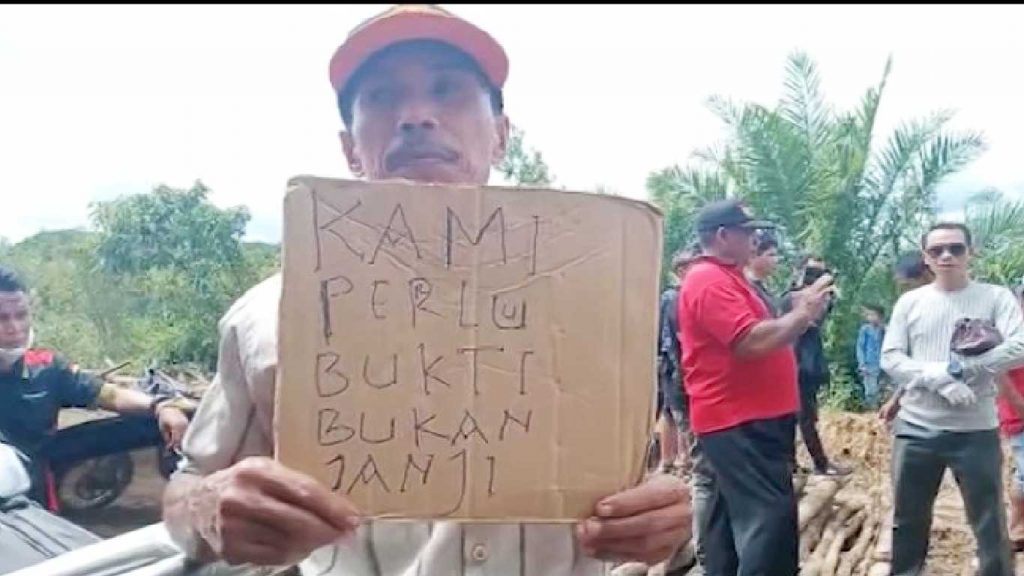 KAMI
PERLU
BUKTI
BUKAN
JANJI